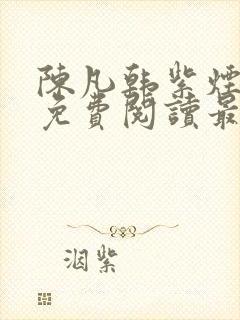 陳凡韩紫煙
免費閱讀最
洇紫